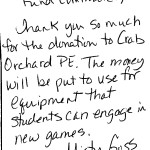 Thank you so much
for the donation to Crab
Orchard PE. The money
will be put to use for
equipment that
students can engage in
new games.